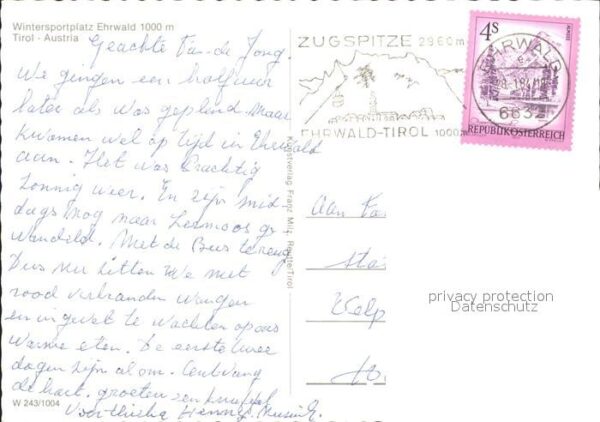 Wintersportplatz Ehrwald 1000 m
Tirol - Austria
Geachte Fam. de Jong.
We gingen een half uur
later als was gepland. Maar
kwamen wel op tijd in Ehrwald
aan. Het was Prachtig
zonnig weer. En zijn mid-
dags nog naar Lermoos ge
wandeld. Met de Bus terug
Dus nu zitten We met
rood verbranden wangen
en in gevet te wachten op ons
warme eten. De eerste twee
dagen zijn al om.
de hart. groeten en
W 243/1004
Kunstverlag Franz Milz, Reutte/Tirol
ZUGSPITZE 2960m
EHRWALD-TIROL 1000m
4S
REPUBLIK ÖSTERREICH
EHRWALD
6632
Aan Fa
Sta
Welp
privacy protection
Datenschutz